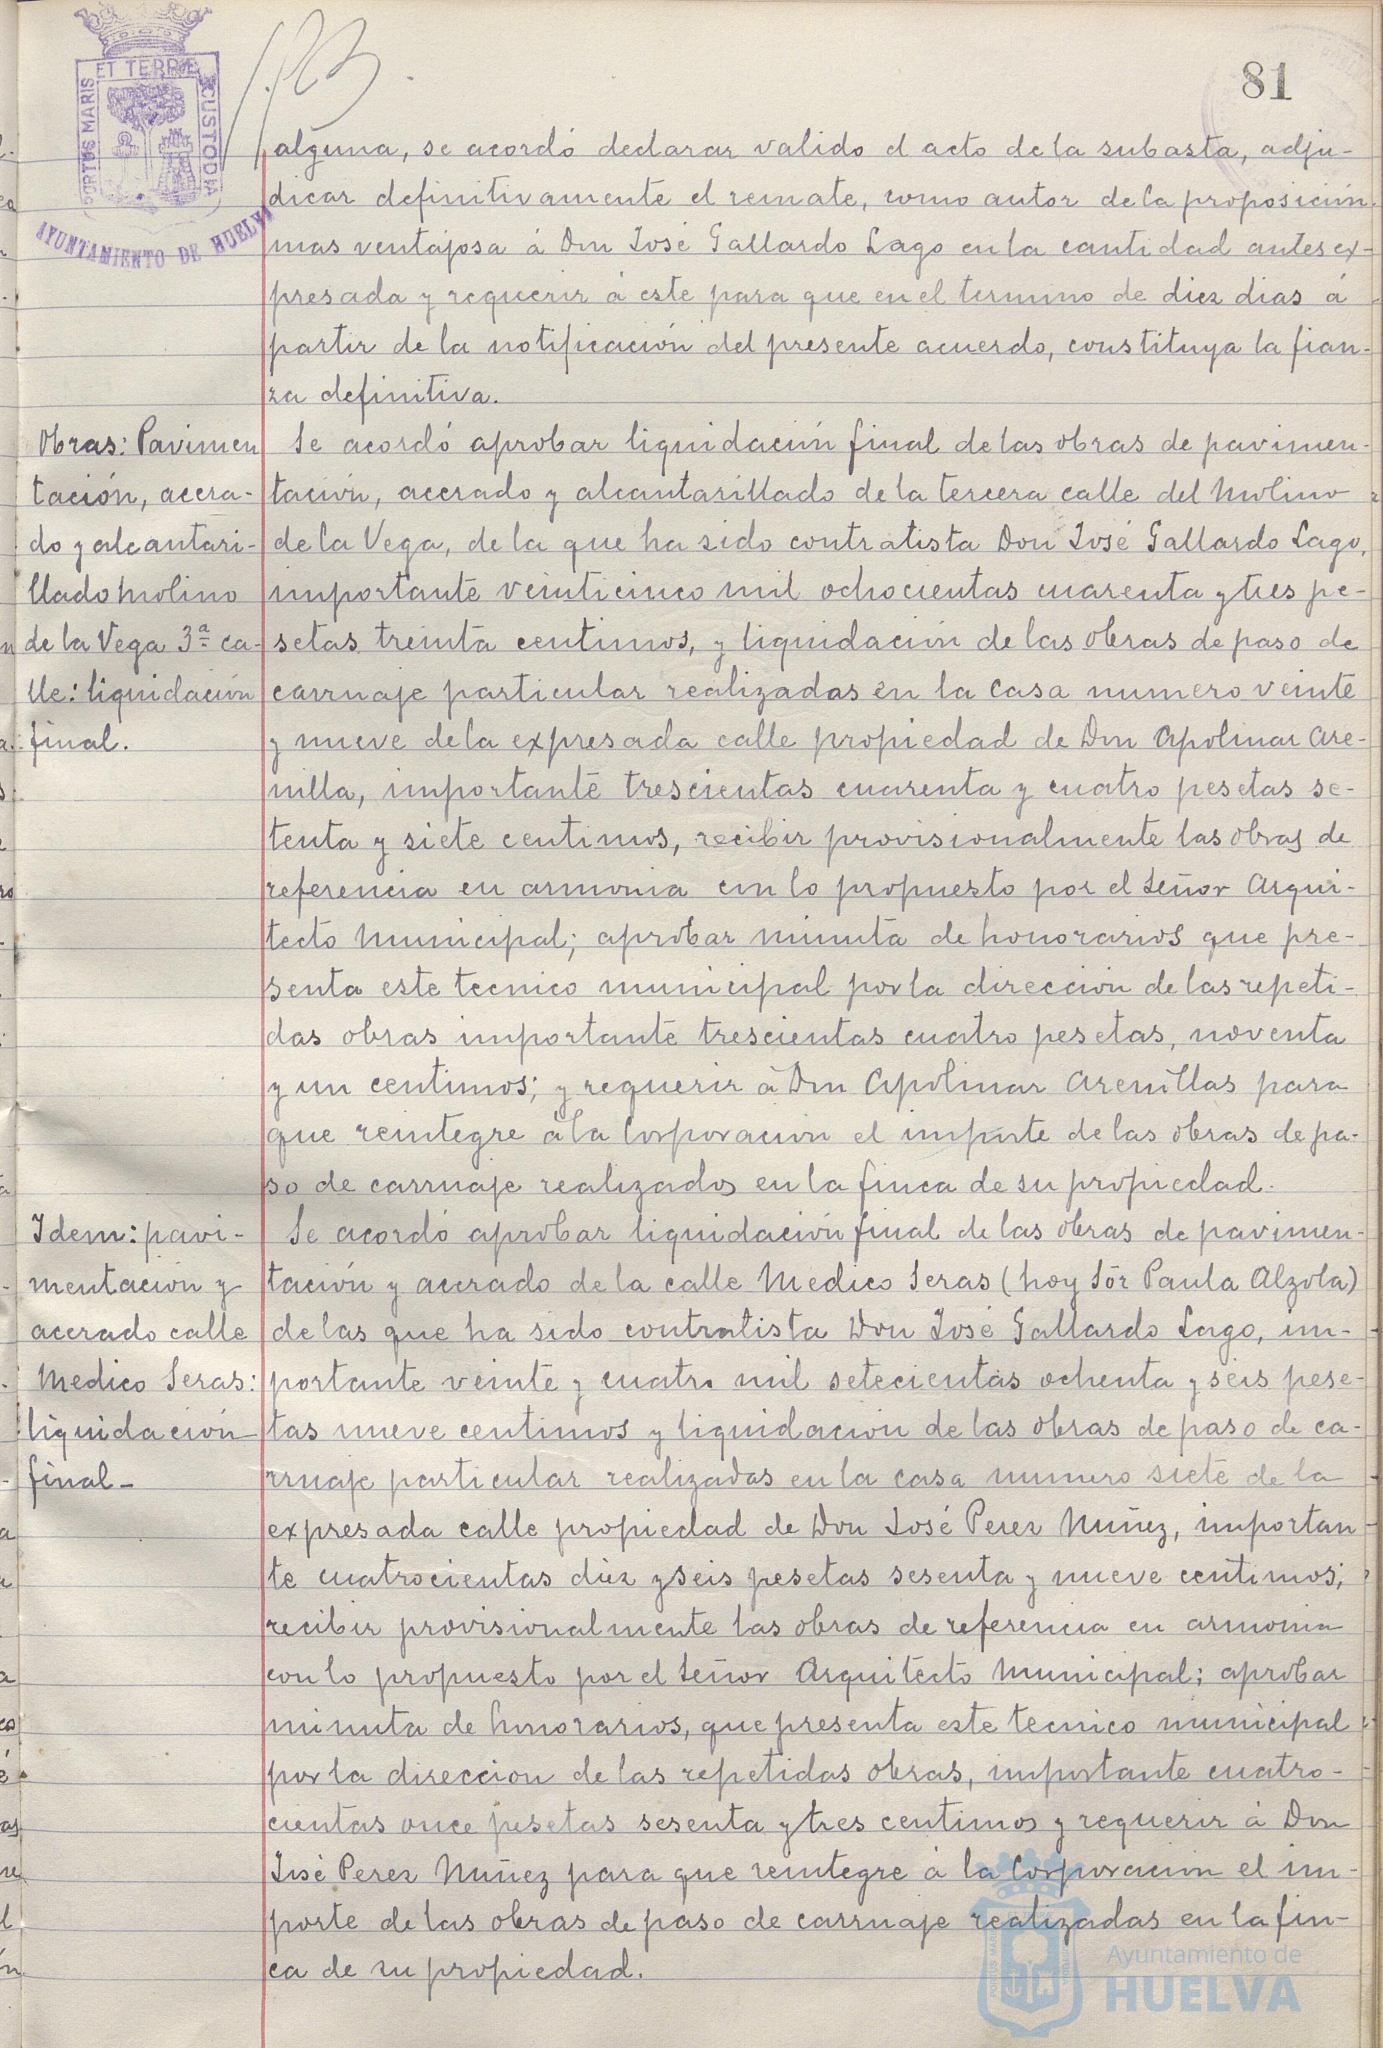 81
PORTUS MARIS ET TERRÆ CUSTODIA
AYUNTAMIENTO DE HUELVA
alguna, se acordó declarar valido el acto de la subasta, adju-
dicar definitivamente el remate, como autor de la proposición
mas ventajosa á Don José Gallardo Lago en la cantidad antes ex-
presada y requerir á este para que en el termino de diez dias á
partir de la notificación del presente acuerdo, constituya la fian-
za definitiva.
Obras: Pavimen
tación, acera-
do y alcantari-
llado Molino
de la Vega 3ª ca-
lle: liquidación
final.
Se acordó aprobar liquidación final de las obras de pavimen-
tación, acerado y alcantarillado de la tercera calle del Molino
de la Vega, de la que ha sido contratista Don José Gallardo Lago,
importante veinticinco mil ochocientas cuarenta y tres pe-
setas treinta centimos, y liquidación de las obras de paso de
carruaje particular realizadas en la casa numero veinte
y nueve de la expresada calle propiedad de Don Apolinar Are-
nilla, importante trescientas cuarenta y cuatro pesetas se-
tenta y siete centimos, recibir provisionalmente las obras de
referencia en armonia con lo propuesto por el Señor Arqui-
tecto Municipal; aprobar minuta de honorarios que pre-
senta este tecnico municipal por la direccion de las repeti-
das obras importante trescientas cuatro pesetas, noventa
y un centimos; y requerir á Don Apolinar Arenillas para
que reintegre á la Corporacion el importe de las obras de pa-
so de carruaje realizados en la finca de su propiedad.
Idem: pavi-
mentación y
acerado calle
Medico Seras:
liquidación
final-
Se acordó aprobar liquidación final de las obras de pavimen-
tación y acerado de la calle Medico Seras (hoy Sor Paula Alzola)
de las que ha sido contratista Don José Gallardo Lago, im-
portante veinte y cuatro mil setecientas ochenta y seis pese-
tas nueve centimos y liquidación de las obras de paso de ca-
rruaje particular realizadas en la casa numero siete de la
expresada calle propiedad de Don José Perez Nuñez, importan
te cuatrocientas diez y seis pesetas sesenta y nueve centimos;
recibir provisionalmente las obras de referencia en armonia
con lo propuesto por el Señor Arquitecto Municipal; aprobar
minuta de honorarios, que presenta este tecnico municipal
por la direccion de las repetidas obras, importante cuatro-
cientas once pesetas sesenta y tres centimos y requerir á Don
José Perez Nuñez para que reintegre á la Corporacion el im-
porte de las obras de paso de carruaje realizadas en la fin-
ca de su propiedad.
Ayuntamiento de
HUELVA